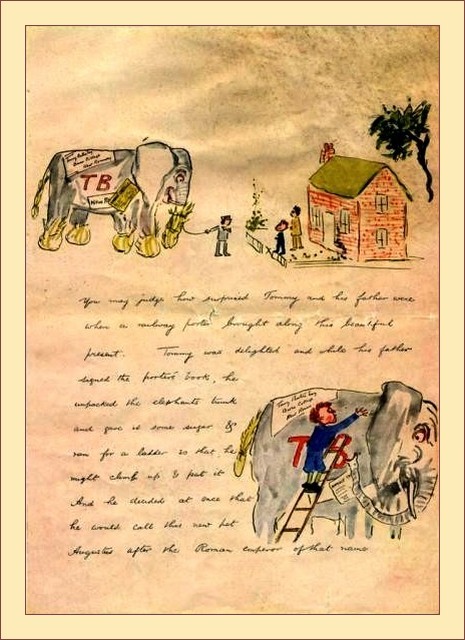 TB
You may judge how surprised Tommy and his father were
when a railway porter brought along this beautiful
present. Tommy was delighted and while his father
signed the porter's book, he
unpacked the elephants trunk
and gave it some sugar &
ran for a ladder so that he
might climb up & pat it
TB
And he decided at once that
he would call this new pet
Augustus after the Roman emperor of that name